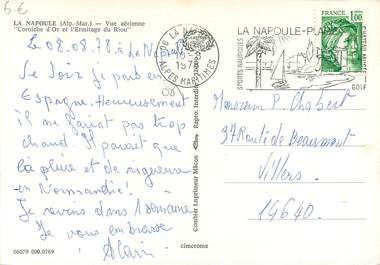 6€
LA NAPOULE (Alp.-Mar.) — Vue aérienne
"Corniche d'Or et l'Ermitage du Riou"
Le 08.08.78 à La Napoule
Ce soir je pars en
Espagne. Heureusement
il ne fait pas trop
chaud. Il parait que
la pluie est de rigueur
en Normandie!
Je reviens dans 1 semaine
Je vous embrasse
Alain
06079 000.0769
cimcrome
Combier Imprimeur Mâcon
Repro. Interdite
06 LA NAPOULE
1978
ALPES MARITIMES
LA NAPOULE-PLAGE
SPORTS NAUTIQUES
GOLF
FRANCE
1,00
Monsieur P. Chabert
37 Route de Beaumont
Villers
14640